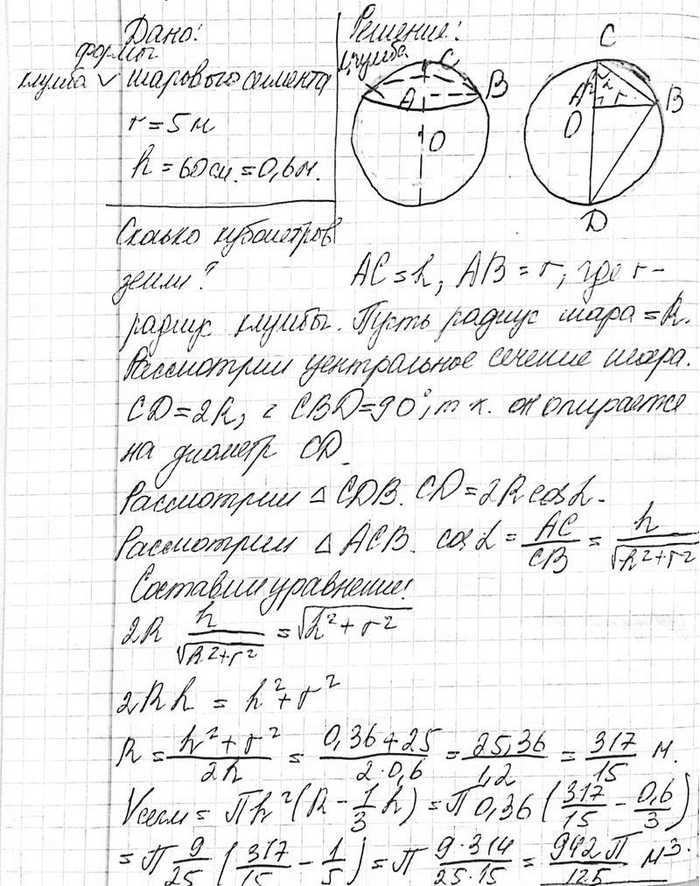 Дано:
формы
клумба ∨ шарового сегмента
r = 5 м
h = 60 см. = 0,6 м.
Сколько кубометров
земли?
Решение:
клумба
C
A B
O
C
α
A r B
O
D
AC = h, AB = r, где r -
радиус клумбы. Пусть радиус шара = R.
Рассмотрим центральное сечение шара.
CD = 2R, ∠ CBD = 90°, т.к. он опирается
на диаметр CD.
Рассмотрим △ CDB. CD = 2R cos α.
Рассмотрим △ ACB. cos α = AC/CB = h/√(h²+r²)
Составим уравнение:
2R h/√(h²+r²) = √(h²+r²)
2Rh = h² + r²
R = (h²+r²)/2h = (0,36+25)/(2·0,6) = 25,36/1,2 = 317/15 м.
Vсегм = π h² (R - 1/3 h) = π 0,36 (317/15 - 0,6/3)
= π 9/25 (317/15 - 1/5) = π 9·314/25·15 = 942 π/125 м³.